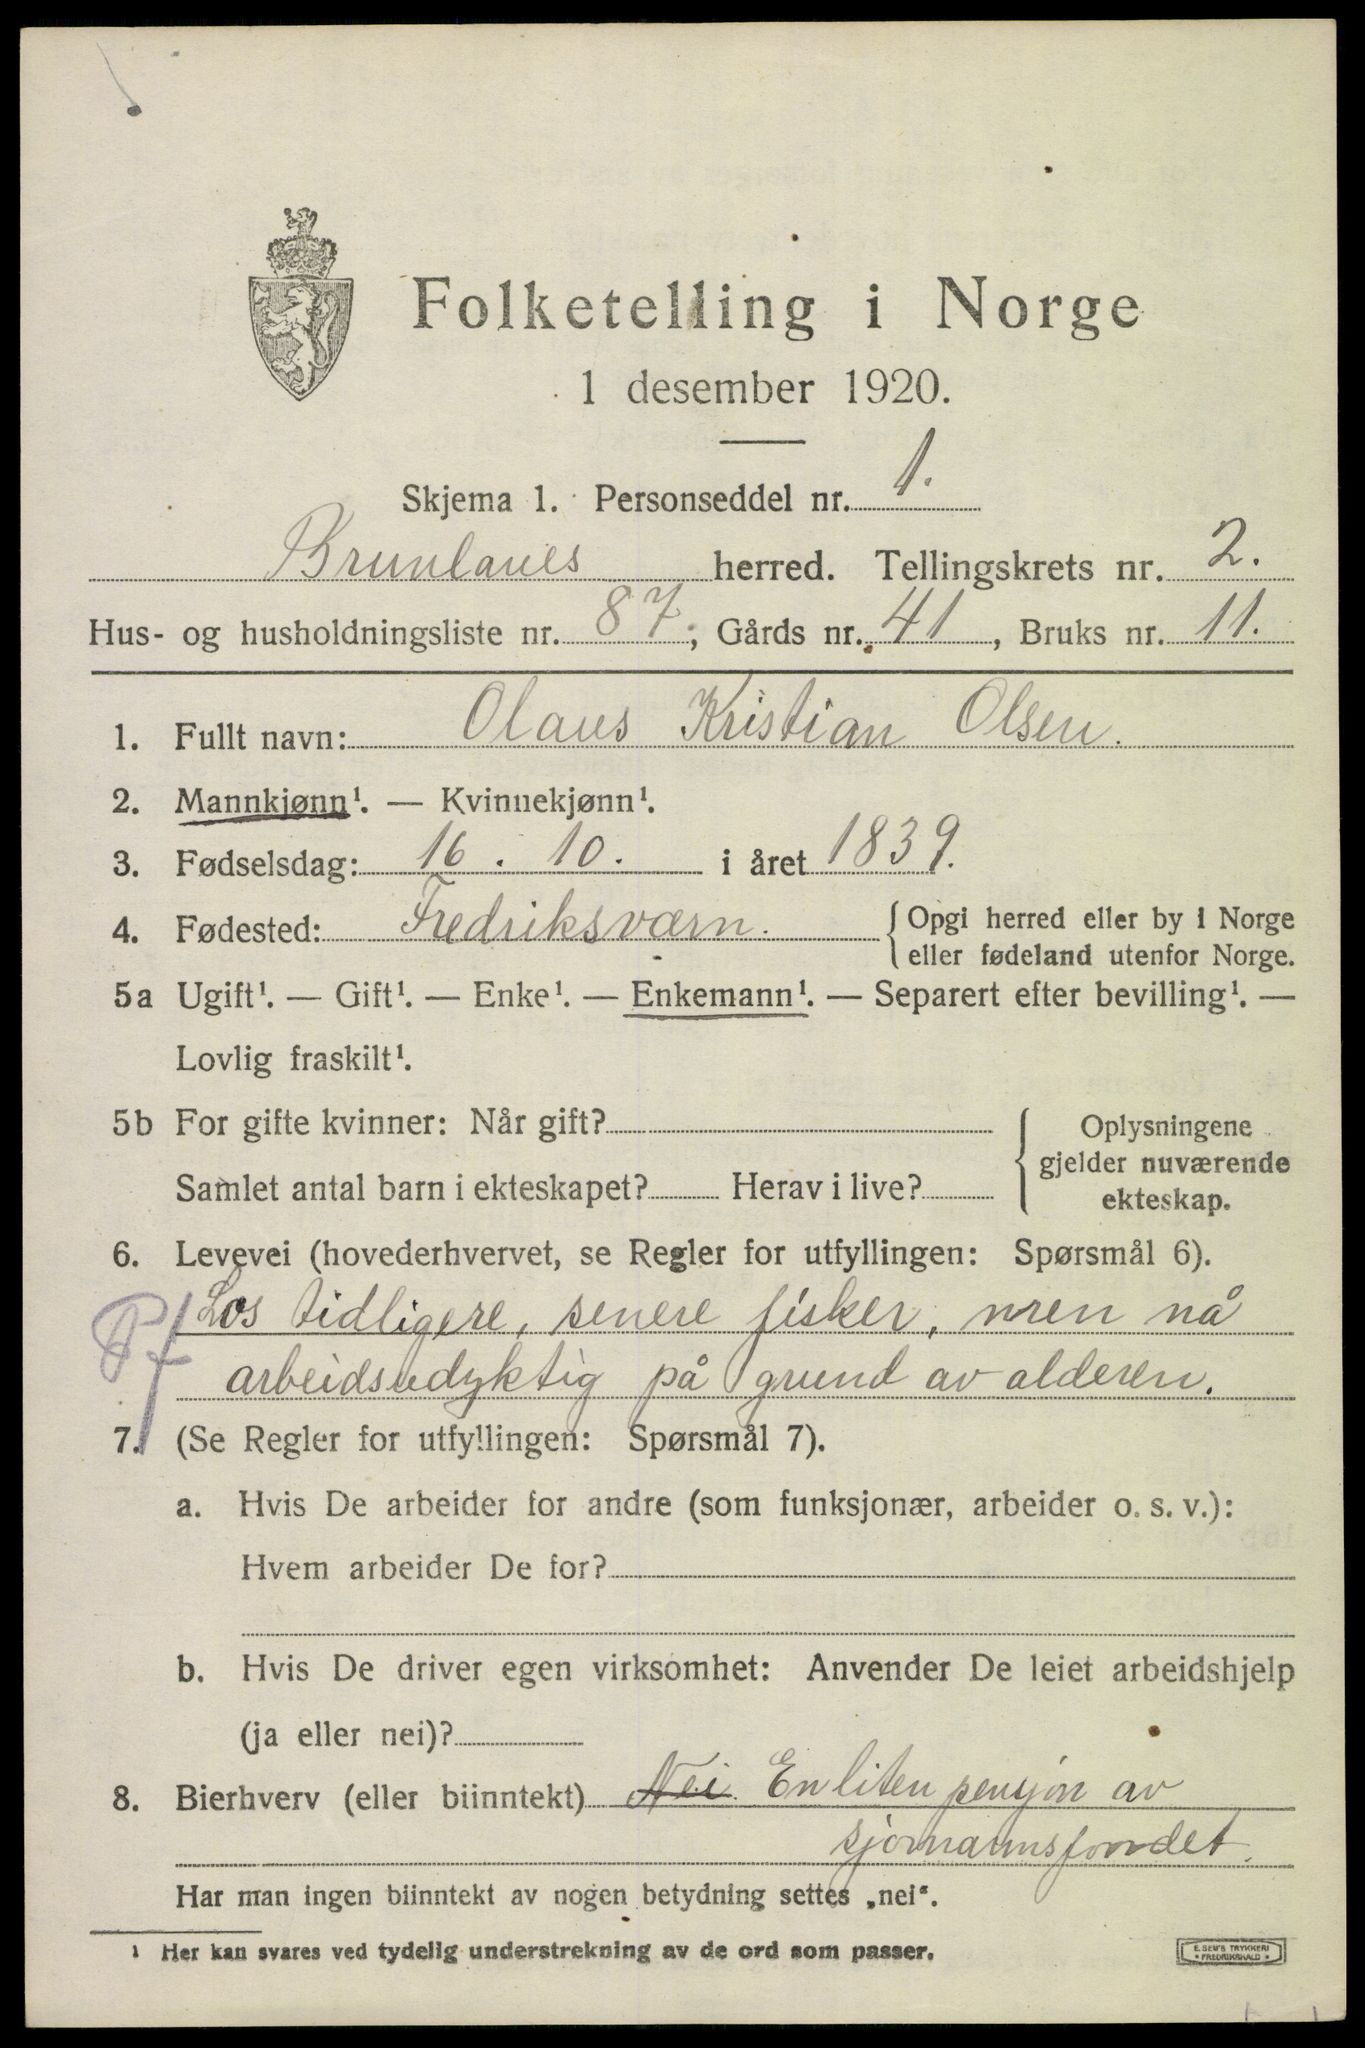 Folketelling i Norge
1 desember 1920.
Skjema 1. Personseddel nr. 1.
Brunlanes herred. Tellingskrets nr. 2.
Hus- og husholdningsliste nr. 87, Gårds nr. 41, Bruks nr. 11.
1. Fullt navn: Olaus Kristian Olsen.
2. Mannkjønn¹. — Kvinnekjønn¹.
3. Fødselsdag: 16. 10. i året 1839.
4. Fødested: Fredriksværn. { Opgi herred eller by i Norge
eller fødeland utenfor Norge.
5a Ugift¹. — Gift¹. — Enke¹. — Enkemann¹. — Separert efter bevilling¹. —
Lovlig fraskilt¹.
5b For gifte kvinner: Når gift?
Samlet antal barn i ekteskapet? Herav i live?
Oplysningene
gjelder nuværende
ekteskap.
6. Levevei (hovederhvervet, se Regler for utfyllingen: Spørsmål 6).
Los tidligere, senere fisker, men nå
arbeidsudyktig på grund av alderen.
7. (Se Regler for utfyllingen: Spørsmål 7).
a. Hvis De arbeider for andre (som funksjonær, arbeider o. s. v.):
Hvem arbeider De for?
b. Hvis De driver egen virksomhet: Anvender De leiet arbeidshjelp
(ja eller nei)?
8. Bierhverv (eller biinntekt) Nei. En liten pensjon av
sjømannsfondet.
Har man ingen biinntekt av nogen betydning settes „nei“.
¹ Her kan svares ved tydelig understrekning av de ord som passer.
E. SEM'S TRYKKERI
FREDRIKSHALD